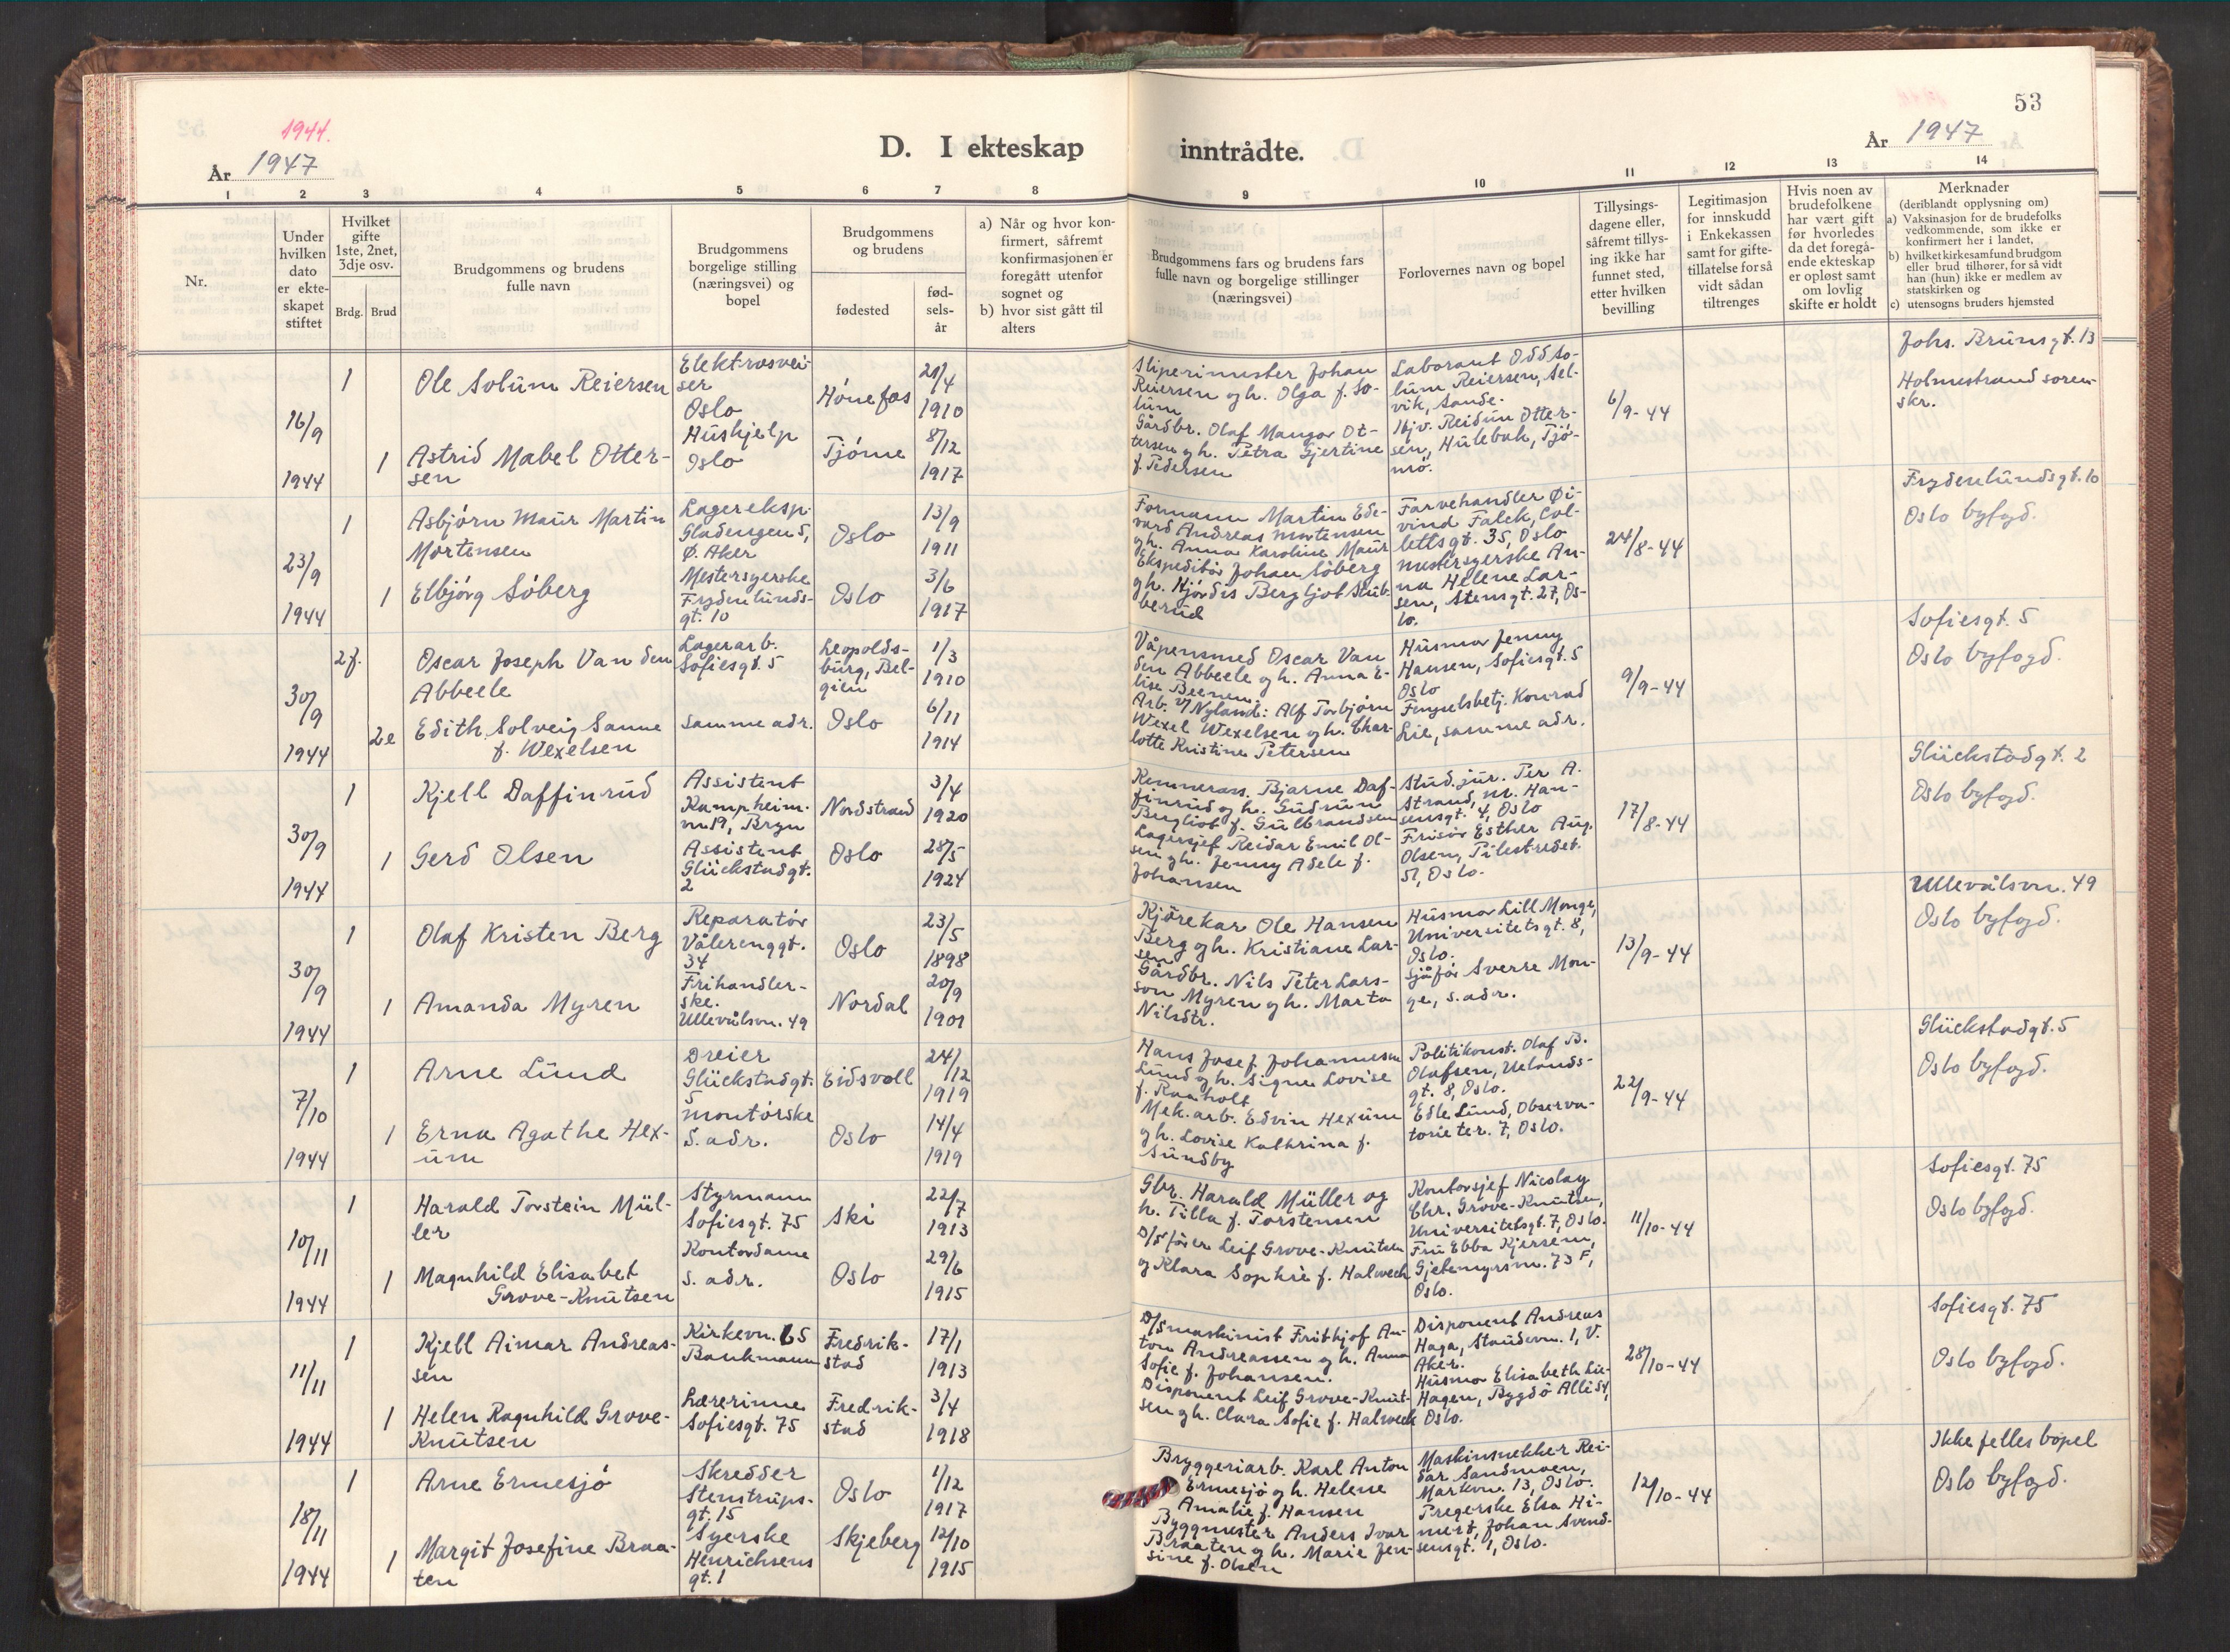 53
1944.
År 1947
D. I ekteskap inntrådte.
År 1947
1 2 3 4 5 6 7 8 9 10 11 12 13 14
Nr.
Under
hvilken
dato
er ekte-
skapet
stiftet
Hvilket
gifte
1ste, 2net,
3dje osv.
Brdg. Brud
Brudgommens og brudens
fulle navn
Brudgommens
borgelige stilling
(næringsvei) og
bopel
Brudgommens
og brudens
fødested
fød-
sels-
år
a) Når og hvor kon-
firmert, såfremt
konfirmasjonen er
foregått utenfor
sognet og
b) hvor sist gått til
alters
Brudgommens fars og brudens fars
fulle navn og borgelige stillinger
(næringsvei)
Forlovernes navn og bopel
Tillysings-
dagene eller,
såfremt tillys-
ing ikke har
funnet sted,
etter hvilken
bevilling
Legitimasjon
for innskudd
i Enkekassen
samt for gifte-
tillatelse for så
vidt sådan
tiltrenges
Hvis noen av
brudefolkene
har vært gift
før hvorledes
da det foregå-
ende ekteskap
er opløst samt
om lovlig
skifte er holdt
Merknader
(deriblandt opplysning om)
a) Vaksinasjon for de brudefolks
vedkommende, som ikke er
konfirmert her i landet,
b) hvilket kirkesamfund brudgom
eller brud tilhører, for så vidt
han (hun) ikke er medlem av
statskirken og
c) utensogns bruders hjemsted
16/9
1944
1
Ole Solum Reiersen
Elektrosvei-
ser
Oslo
Hønefos
21/4
1910
1
Astrid Mabel Otter-
sen
Hushjelp
Oslo
Tjøme
8/12
1917
Sliperimester Johan
Reiersen og h. Olga f. So-
lum
Gårdbr. Olaf Mangor Ot-
tersen og h. Petra Gjertine
f. Pedersen
Laborant Odd So-
lum Reiersen, Sel-
vik, Sande.
Hjv. Reidun Otter-
sen, Hulebak, Tjø-
mø.
6/9-44
Johs. Brunsgt. 13
Holmestrand soren-
skr.
23/9
1944
1
Asbjørn Maur Martin
Mortensen
Lagereksp.
Gladengen 5,
Ø. Aker
Oslo
13/9
1911
1
Elbjørg Søberg
Mestersyerske
Frydenlunds-
gt. 10
Oslo
3/6
1917
Formann Martin Ede-
vard Andreas Mortensen
og h. Anna Karoline Maur
Ekspeditør Johan Søberg
og h. Hjørdis Bergljot Stub-
berud
Farvehandler Øi-
vind Falck, Col-
lettsgt. 35, Oslo
Mestersyerske An-
na Helene Lar-
sen, Stensgt. 27, Os-
lo.
24/8-44
Frydenlundsgt. 10
Oslo byfogd.
30/9
1944
2 f.
Oscar Joseph Van den
Abbeele
Lagerarb.
Sofiesgt. 5
Leopolds-
burg, Bel-
gien
1/3
1910
2e
Edith Solveig Sanne
f. Wexelsen
samme adr.
Oslo
6/11
1914
Våpensmed Oscar Van
den Abbeele og h. Anna E-
lise Beenen.
Arb. v/ Nyland: Alf Torbjørn
Wexel Wexelsen og h. Char-
lotte Kristine Petersen
Husmor Jenny
Hansen, Sofiesgt. 5
Oslo
Fengselsbetj. Konrad
Lie, samme adr.
9/9-44
Sofiesgt. 5
Oslo byfogd.
30/9
1944
1
Kjell Daffinrud
Assistent
Kampheim-
vn 19, Bryn
Nordstrand
3/4
1920
1
Gerd Olsen
Assistent
Glückstadgt.
2
Oslo
28/5
1924
Kemnerass. Bjarne Daf-
finrud og h. Gudrun
Bergliot f. Gulbrandsen
Lagersjef Reidar Emil Ol-
sen og h. Jenny Adele f.
Johansen
Stud. jur. Per A.
Strand, M. Han-
sensgt. 4, Oslo
Frisør Esther Aug.
Olsen, Pilestredet.
51, Oslo.
17/8-44
Glückstadgt. 2
Oslo byfogd.
30/9
1944
1
Olaf Kristen Berg
Reparatør
Vålerenggt.
34
Oslo
23/5
1898
1
Amanda Myren
Frihandler-
ske.
Ullevålsvn. 49
Nordal
20/9
1901
Kjørekar Ole Hansen
Berg og h. Kristiane Lar-
sen
Gårdbr. Nils Peter Lars-
son Myren og h. Marta
Nilsdtr.
Husmor Lill Monge,
Universitetsgt. 8,
Oslo.
Sjåfør Sverre Mon-
ge, s. adr.
13/9-44
Ullevålsvn. 49
Oslo byfogd.
7/10
1944
1
Arne Lund
Dreier
Glückstadgt.
5
Eidsvoll
24/12
1919
1
Erna Agathe Hex-
um
Montørske
s. adr.
Oslo
14/4
1919
Hans Josef Johannesen
Lund og h. Signe Lovise
f. Raaholt
Mek. arb. Edvin Hexum
og h. Lovise Kathrina f.
Sundby
Politikonst. Olaf B.
Olafsen, Uelands-
gt. 8, Oslo.
Edle Lund, Observa-
torie ter. 7, Oslo.
22/9-44
Glückstadgt. 5
Oslo byfogd.
10/11
1944
1
Harald Torstein Mül-
ler
Styrmann
Sofiesgt. 75
Ski
22/7
1913
1
Magnhild Elisabet
Grove-Knutsen
Kontordame
s. adr.
Oslo
29/6
1915
Gbr. Harald Müller og
h. Tilla f. Torstensen
D/S fører Leif Grove-Knutsen
og Klara Sophie f. Halweck
Kontorsjef Nicolay
Chr. Grove-Knutsen,
Universitetsgt. 7, Oslo.
Fru Ebba Kjersem,
Gjetemyrsvn. 73 F,
Oslo.
11/10-44
Sofiesgt. 75
Oslo byfogd.
11/11
1944
1
Kjell Aimar Andreas-
sen
Kirkevn. 65
Bankmann
Fredrik-
stad
17/1
1913
1
Helen Ragnhild Grove-
Knutsen
Lærerinne
Sofiesgt. 75
Fredrik-
stad
3/4
1918
D/Smaskinist Frithjof An-
ton Andreassen og h. Anna
Sofie f. Johansen.
Disponent Leif Grove-Knut-
sen og h. Clara Sofie f. Halweck
Disponent Andreas
Haga, Staudevn. 1, V.
Aker.
Husmor Elisabeth Lie-
Hagen, Bygdø Allé 54,
Oslo.
28/10-44
Sofiesgt. 75
Oslo byfogd.
18/11
1944
1
Arne Ermesjø
Skredder
Stenstrups-
gt. 15
Oslo
1/12
1917
1
Margit Josefine Braa-
ten
Syerske
Henrichsens
gt. 1
Skjeberg
12/10
1915
Bryggeriarb. Karl Anton
Ermesjø og h. Helene
Amalie f. Hansen
Byggmester Anders Ivar
Braaten og h. Marie Jen-
sine f. Olsen
Maskinsnekker Rei-
dar Sandmoen,
Markvn. 13, Oslo.
Pregerske Elsa Hi-
mert, Johan Svend-
sensgt. 1, Oslo.
12/10-44
Ikke felles bopel
Oslo byfogd.